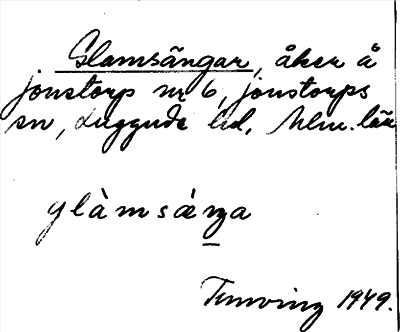 Glamsängar, åker å
Jonstorp nr 6, Jonstorps
sn, Luggude hd, Mlm. län
glàmsáŋa
Tunving 1949.